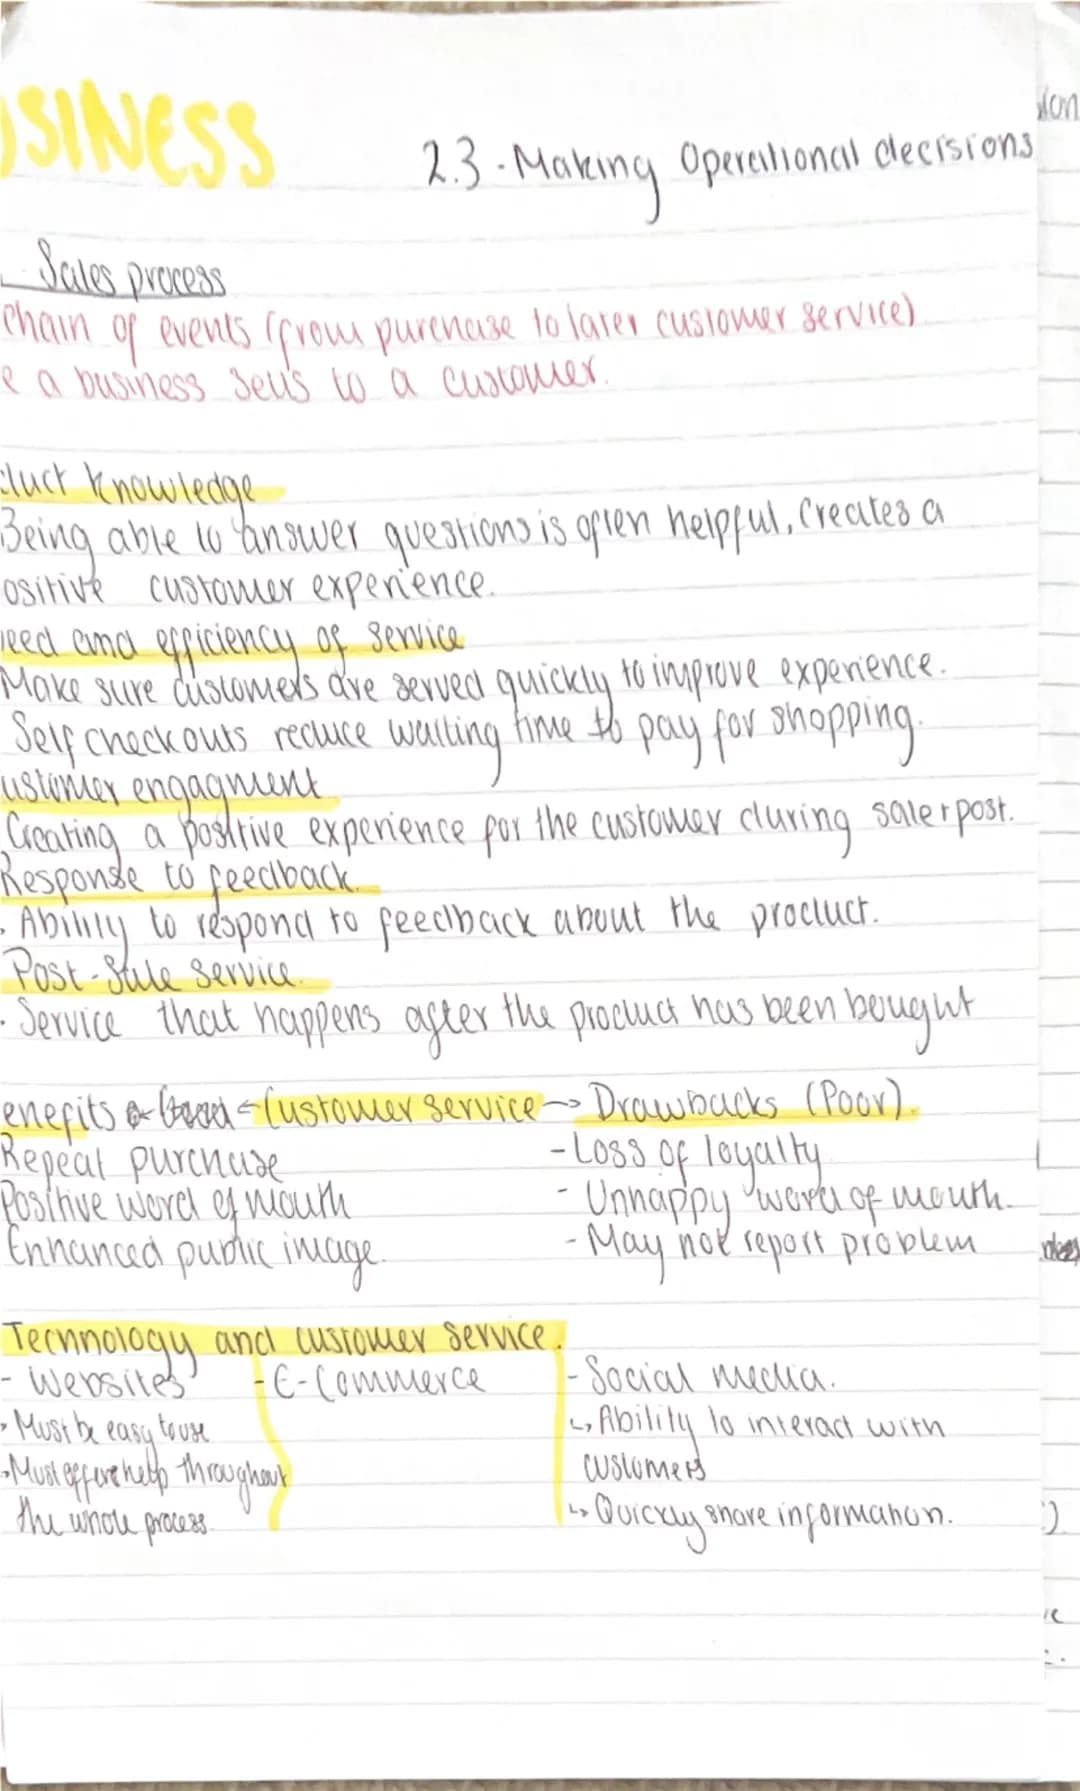 USINESS
2.3 - Making Operational decisions
Sales process
Chain of events (from purchase to later customer service)
e a business sells to a customer.
duct knowledge
Being able to answer questions is often helpful, creates a
ositive customer experience.
eed and efficiency of service
Make sure customers are served quickly to improve experience.
Self checkouts reduce waiting time to pay for shopping.
ustomer engagment
Creating a positive experience for the customer during sale + post.
Response to feedback.
- Ability to respond to feedback about the product.
Post-Sale Service.
- Service that happens after the product has been bought
enefits Good ← Customer service → Drawbacks (Poor).
Repeat purchase
- Loss of loyalty
Positive word of mouth
- Unhappy word of mouth.
Enhanced public image.
- May not report problem
Technology and customer service.
- Websites
- E-Commerce
- Social media.
Must be easy to use
↳ Ability to interact with
customers
help throughout
the whole process.
↳ Quickly share information.